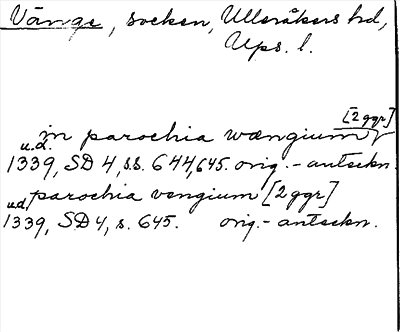 Vänge, socken, Ulleråkers hd,
Ups. l.
[2 ggr]
in parochia wængium
u.d.
1339, SD 4, s.s. 644, 645. orig.- anteckn.
u.d. parochia vengium [2 ggr]
1339, SD 4, s. 645. orig.- anteckn.